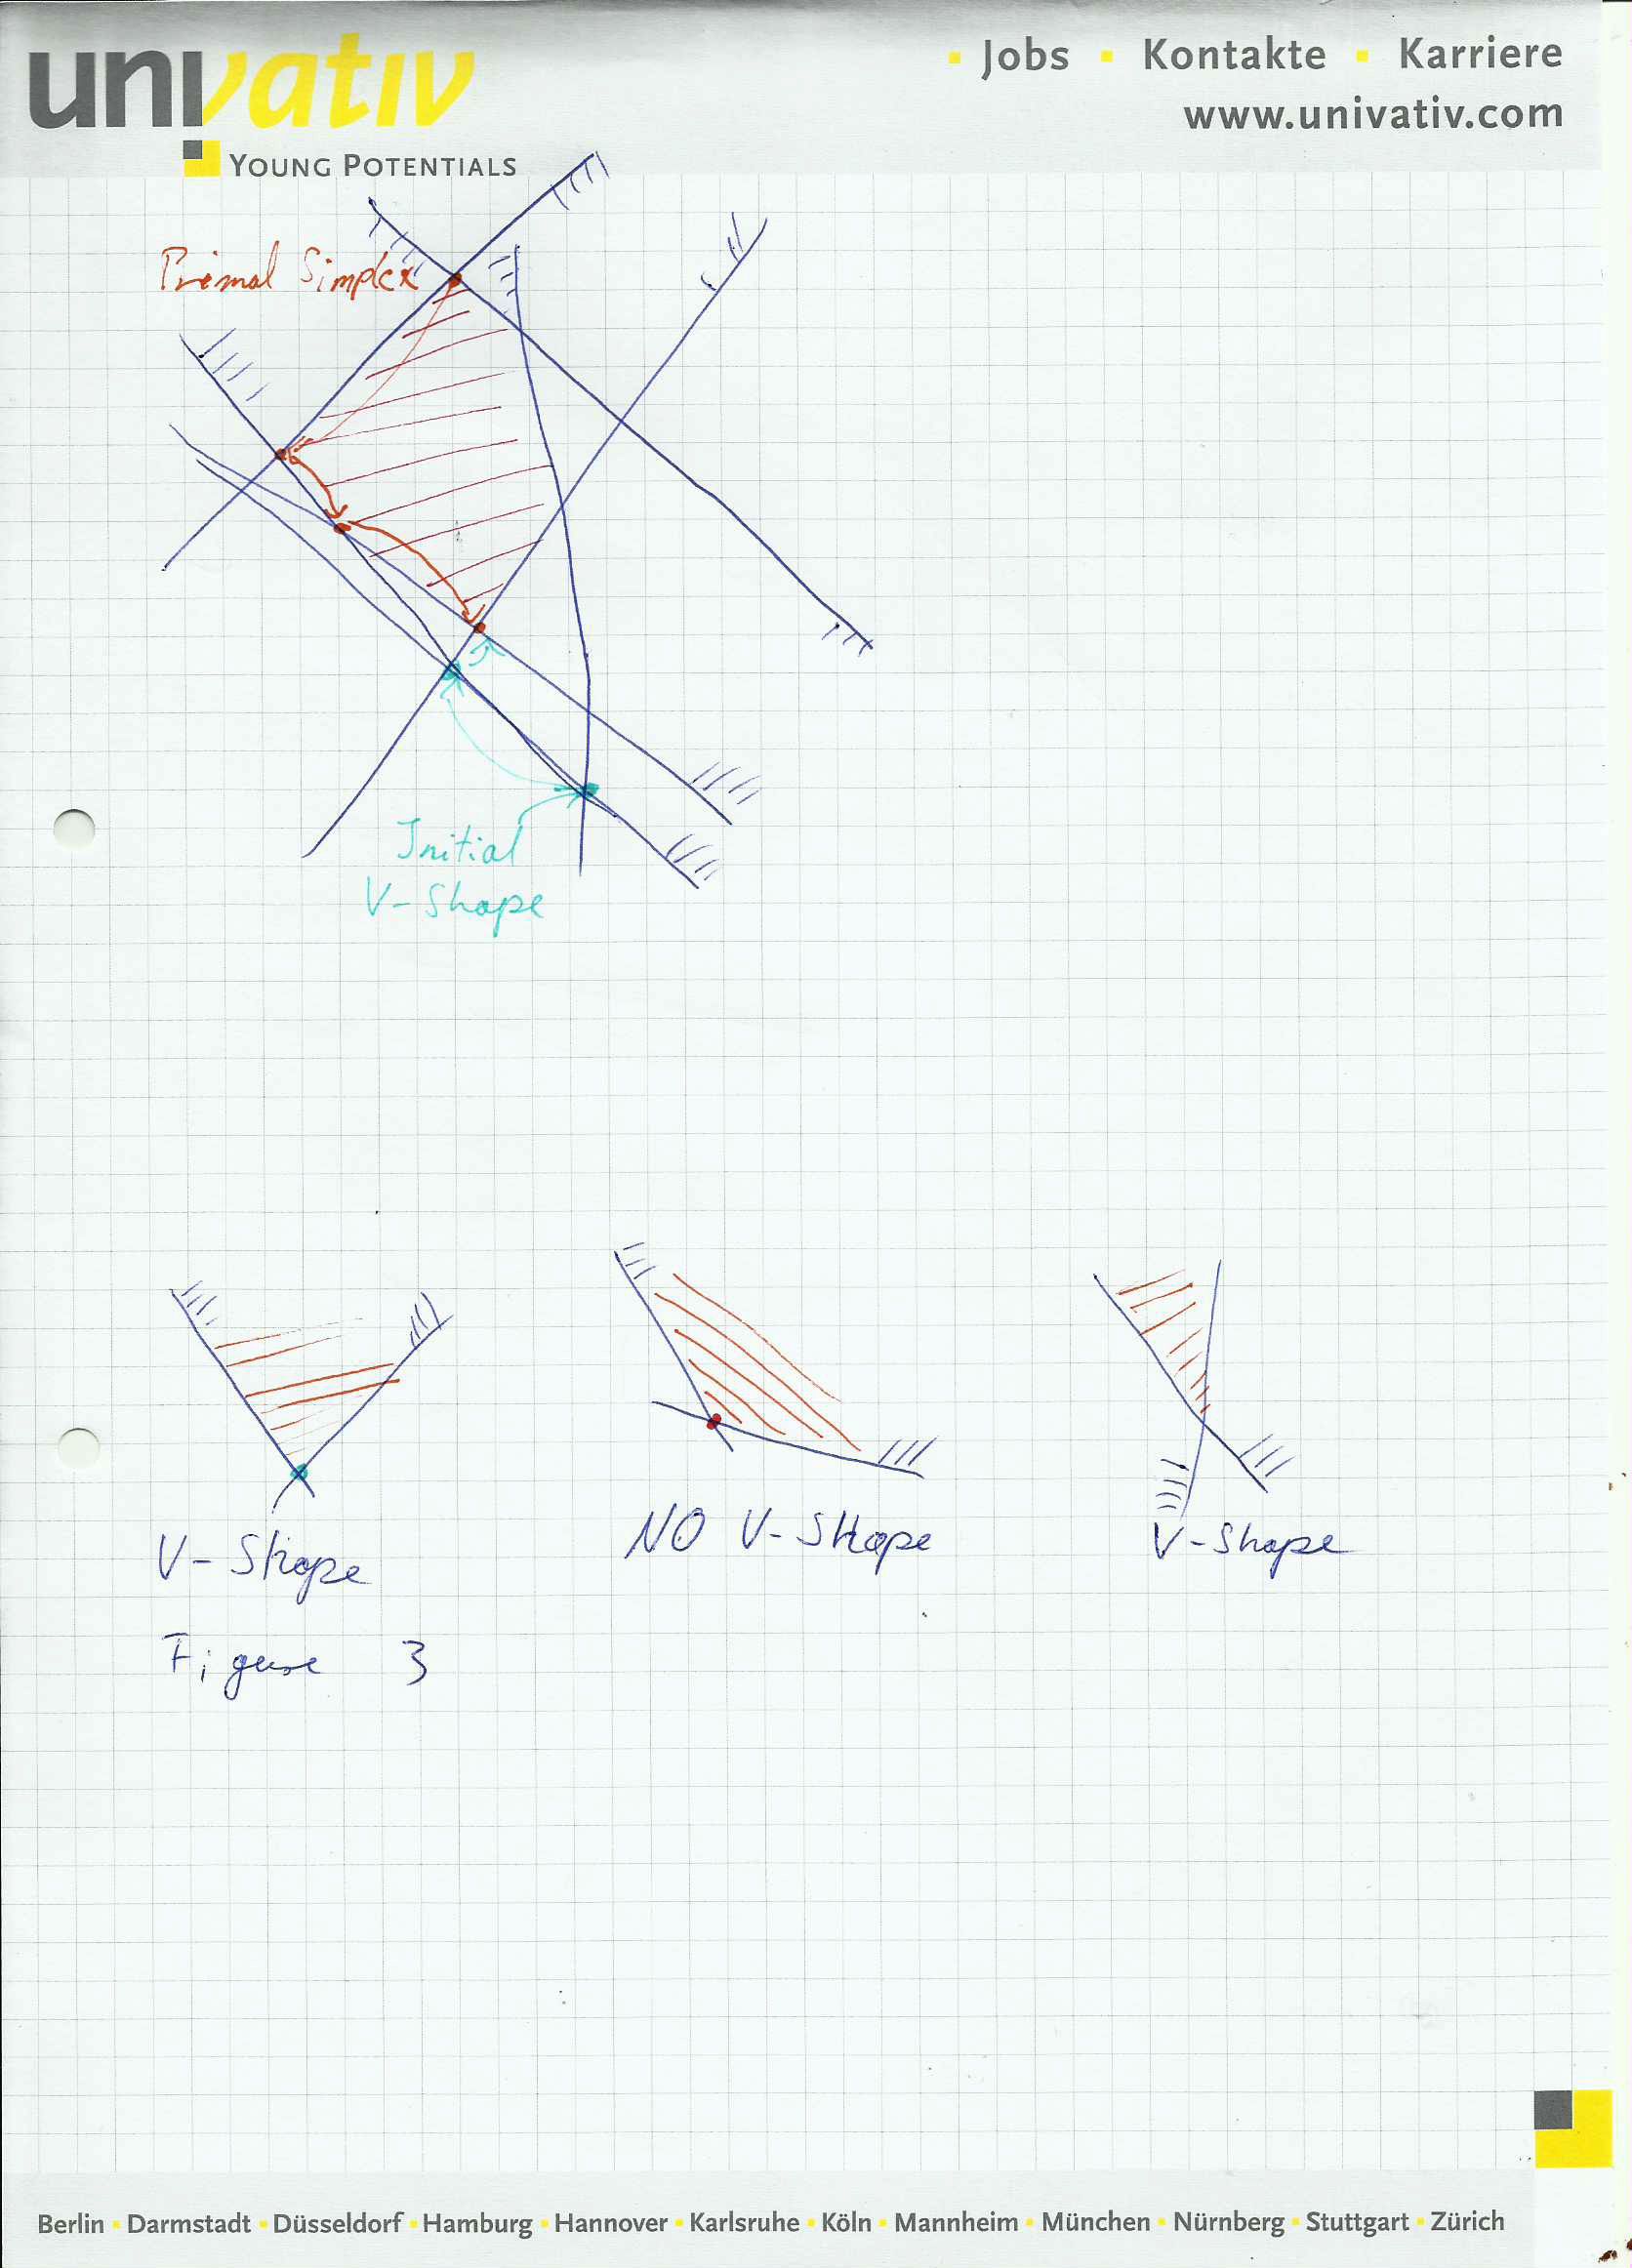 univativ
YOUNG POTENTIALS
Jobs Kontakte Karriere
www.univativ.com
Primal Simplex
Initial
V-Shape
V-Shape
NO V-Shape
V-Shape
Figure 3
Berlin Darmstadt Düsseldorf Hamburg Hannover Karlsruhe Köln Mannheim München Nürnberg Stuttgart Zürich